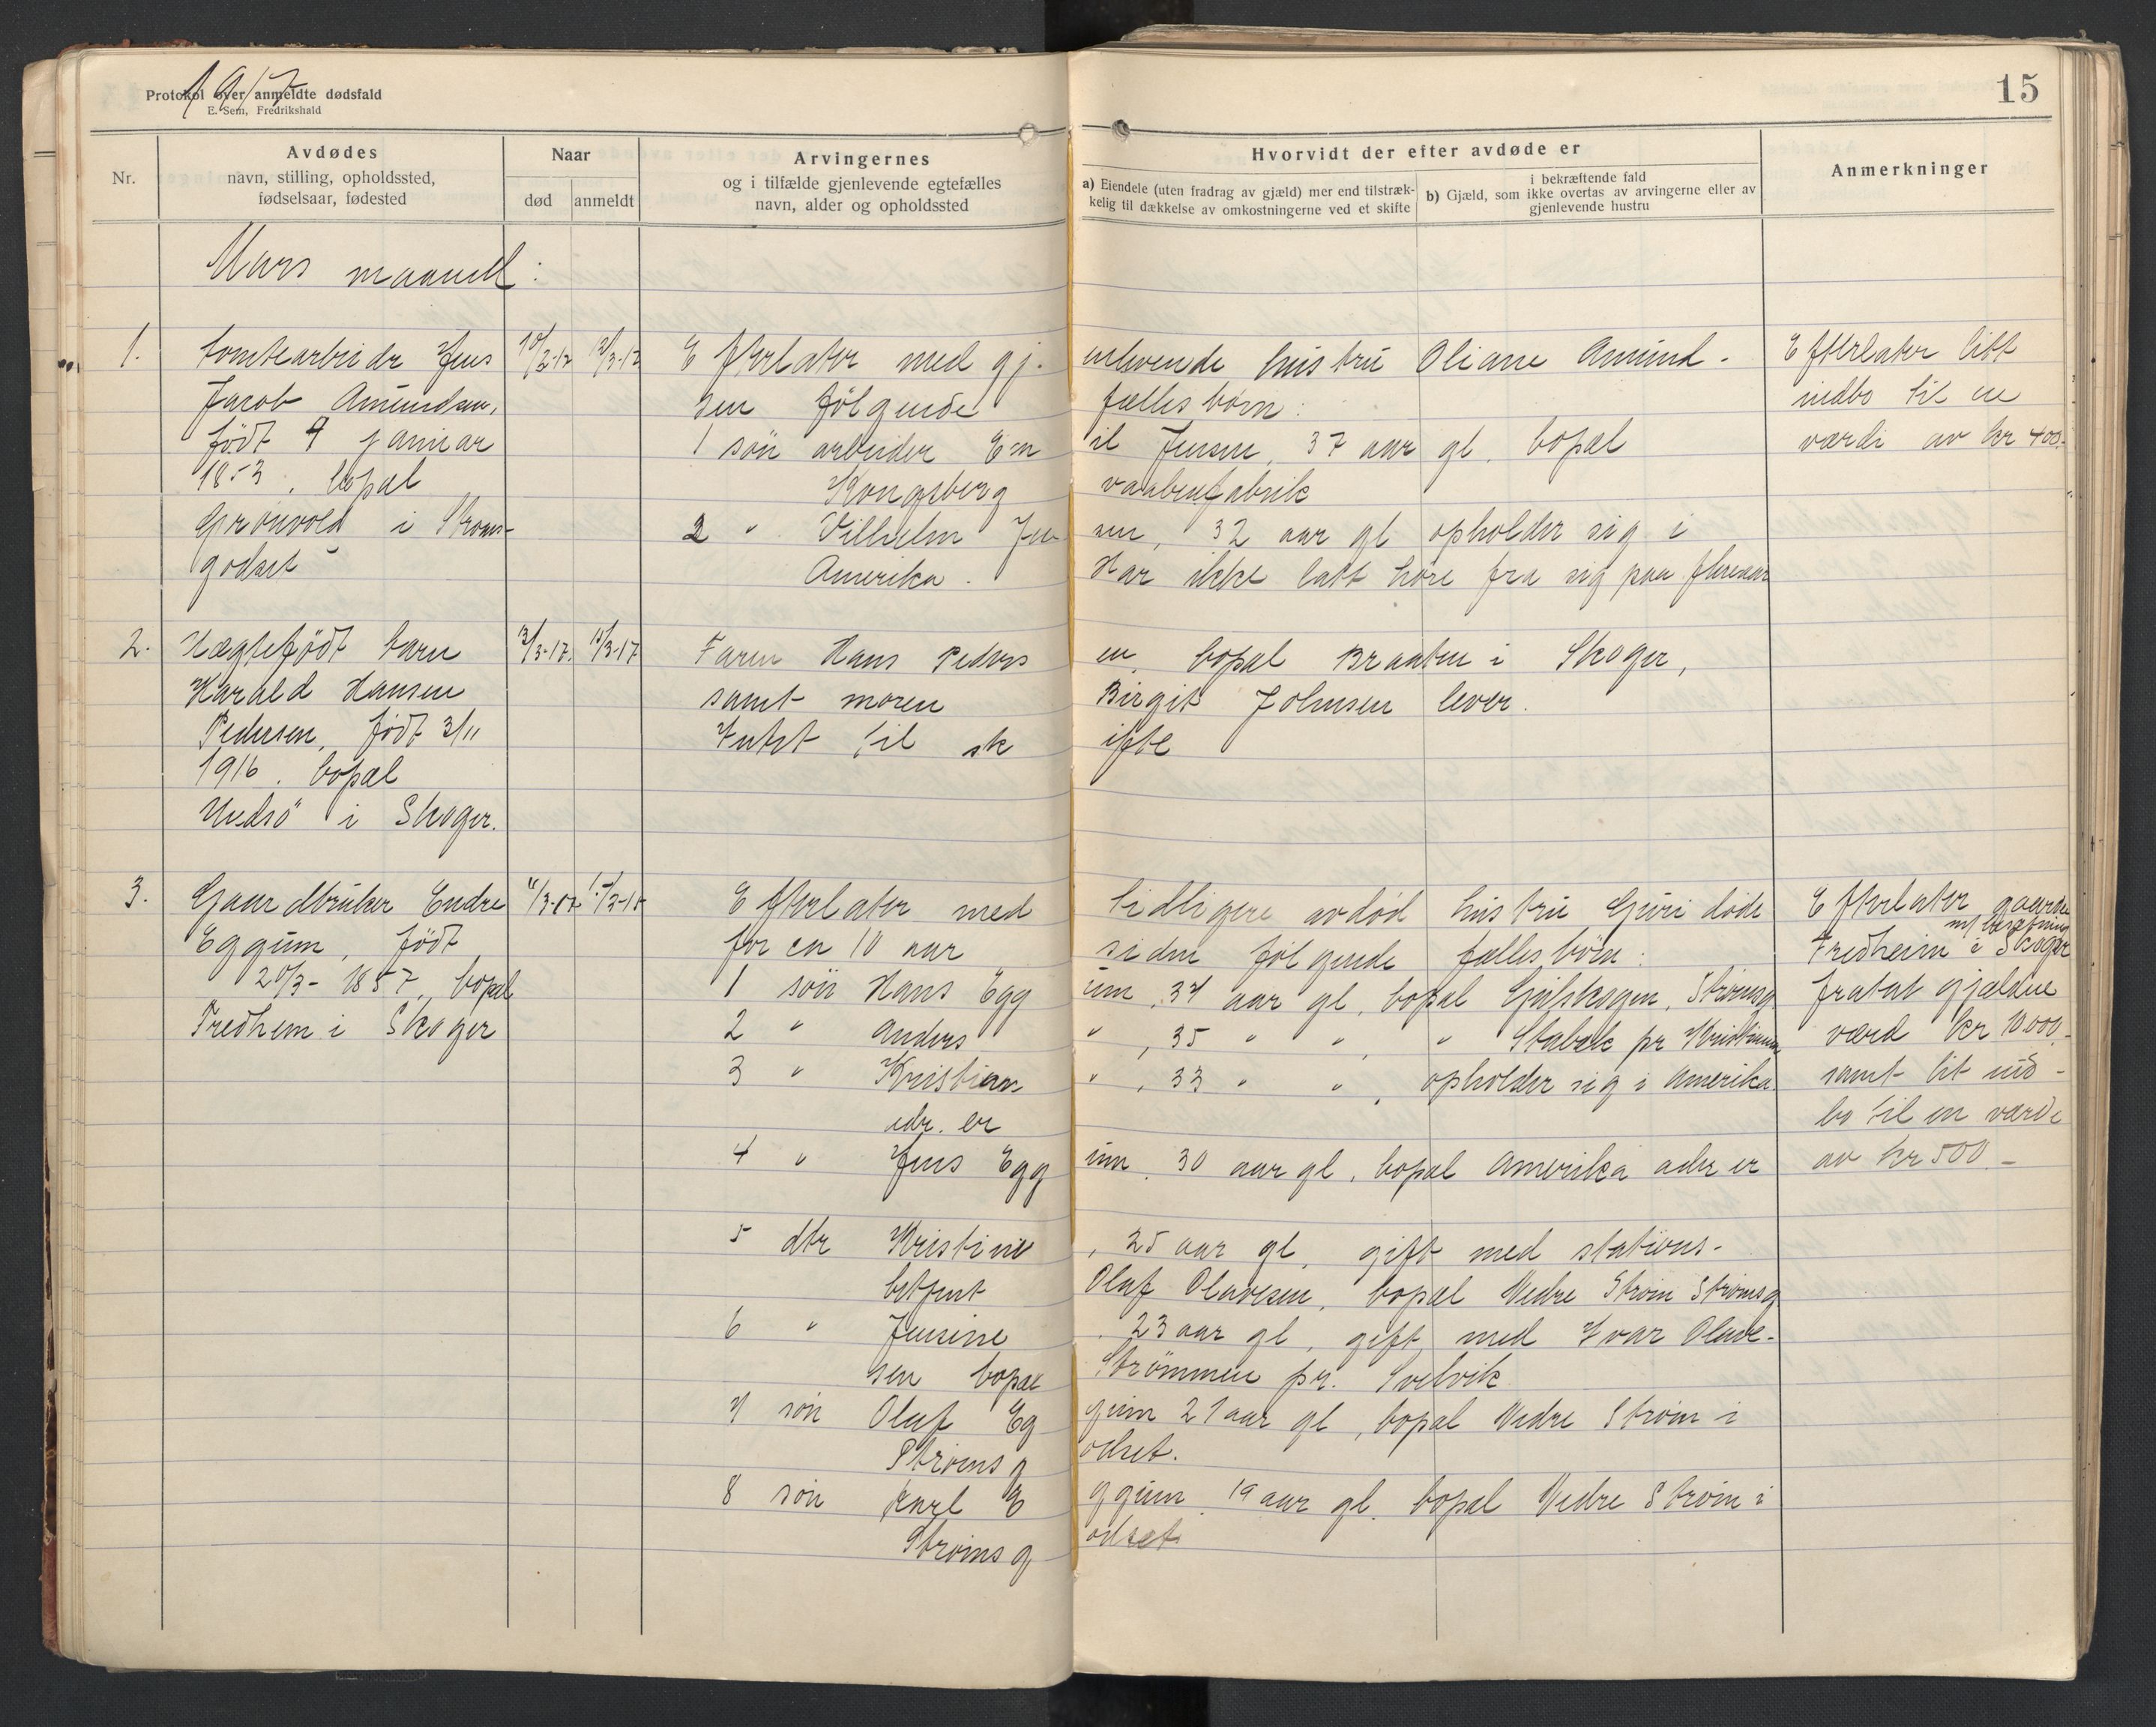 1917
Protokol over anmeldte dødsfald
E. Sem, Fredrikshald
15
Nr.
Avdødes
navn, stilling, opholdssted,
fødselsaar, fødested
Naar
død
anmeldt
Arvingernes
og i tilfælde gjenlevende egtefælles
navn, alder og opholdssted
Hvorvidt der efter avdøde er
a) Eiendele (uten fradrag av gjæld) mer end tilstræk-
kelig til dækkelse av omkostningerne ved et skifte
i bekræftende fald
b) Gjæld, som ikke overtas av arvingerne eller av
gjenlevende hustru
Anmerkninger
Mars maaned:
1. tomtearbeider Jens
Jacob Amundsen,
født 9 januar
1853, bopæl
Grønvold i Stroms-
godset
12/3-17
Efterlater med gj. enlevende hustru Oliane Amund-
sen følgende fællesbørn:
1 søn arbeider Emil Jensen, 37 aar gl. bopæl
Kongsberg vaabenfabrik
2 " Vilhelm Jensen, 32 aar gl opholder sig i
Amerika. Har ikke latt høre fra sig paa flereaar
Efterlater litt
indbo til en
værdi av kr 400.-
2. Uægtefødt barn
Harald Hansen
Pedersen, født 3/11
1916. bopæl
i Skoger.
13/3-17. 15/3-17
Faren Hans Pedersen, bopæl Braaten i Skoger,
samt moren Birgit Johnsen lever.
Intet til skifte
3. Gaardbruker Endre
Eggum, født
20/3-1857, bopæl
Fredhem i Skoger
11/3-17 15/3-17
Efterlater med tidligere avdød hustru Guri døde
for ca 10 aar siden følgende fællesbørn:
1 søn Hans Eggum, 37 aar gl, bopæl Gulskogen, Strømsg
2 " Anders " , 35 " " , " Stabæk pr Kristiania
3 " Kristian " , 33 " " , opholder sig i Amerika
adr. er
4 " Jens Eggum, 30 aar gl, bopæl Amerika adr er
5 dtr Kristine, 25 aar gl, gift med stations-
betjent Olaf Olavesen, bopæl Nedre Strøm Strømsg
6 " Jensine, 23 aar gl, gift med Ivar Olave-
sen bopæl Strømmen pr. Svelvik
7 søn Olaf Eggum 21 aar gl, bopæl Nedre Strøm i
Strømsgodset.
8 søn Karl Eggum 19 aar gl. bopæl Nedre Strøm i
Strømsgodset
Efterlater gaarden
m/ besætning
Fredheim i Skoger
fratat gjælden
værd kr 10.000.-
samt lit ind-
bo til en værdi
av kr 500.-